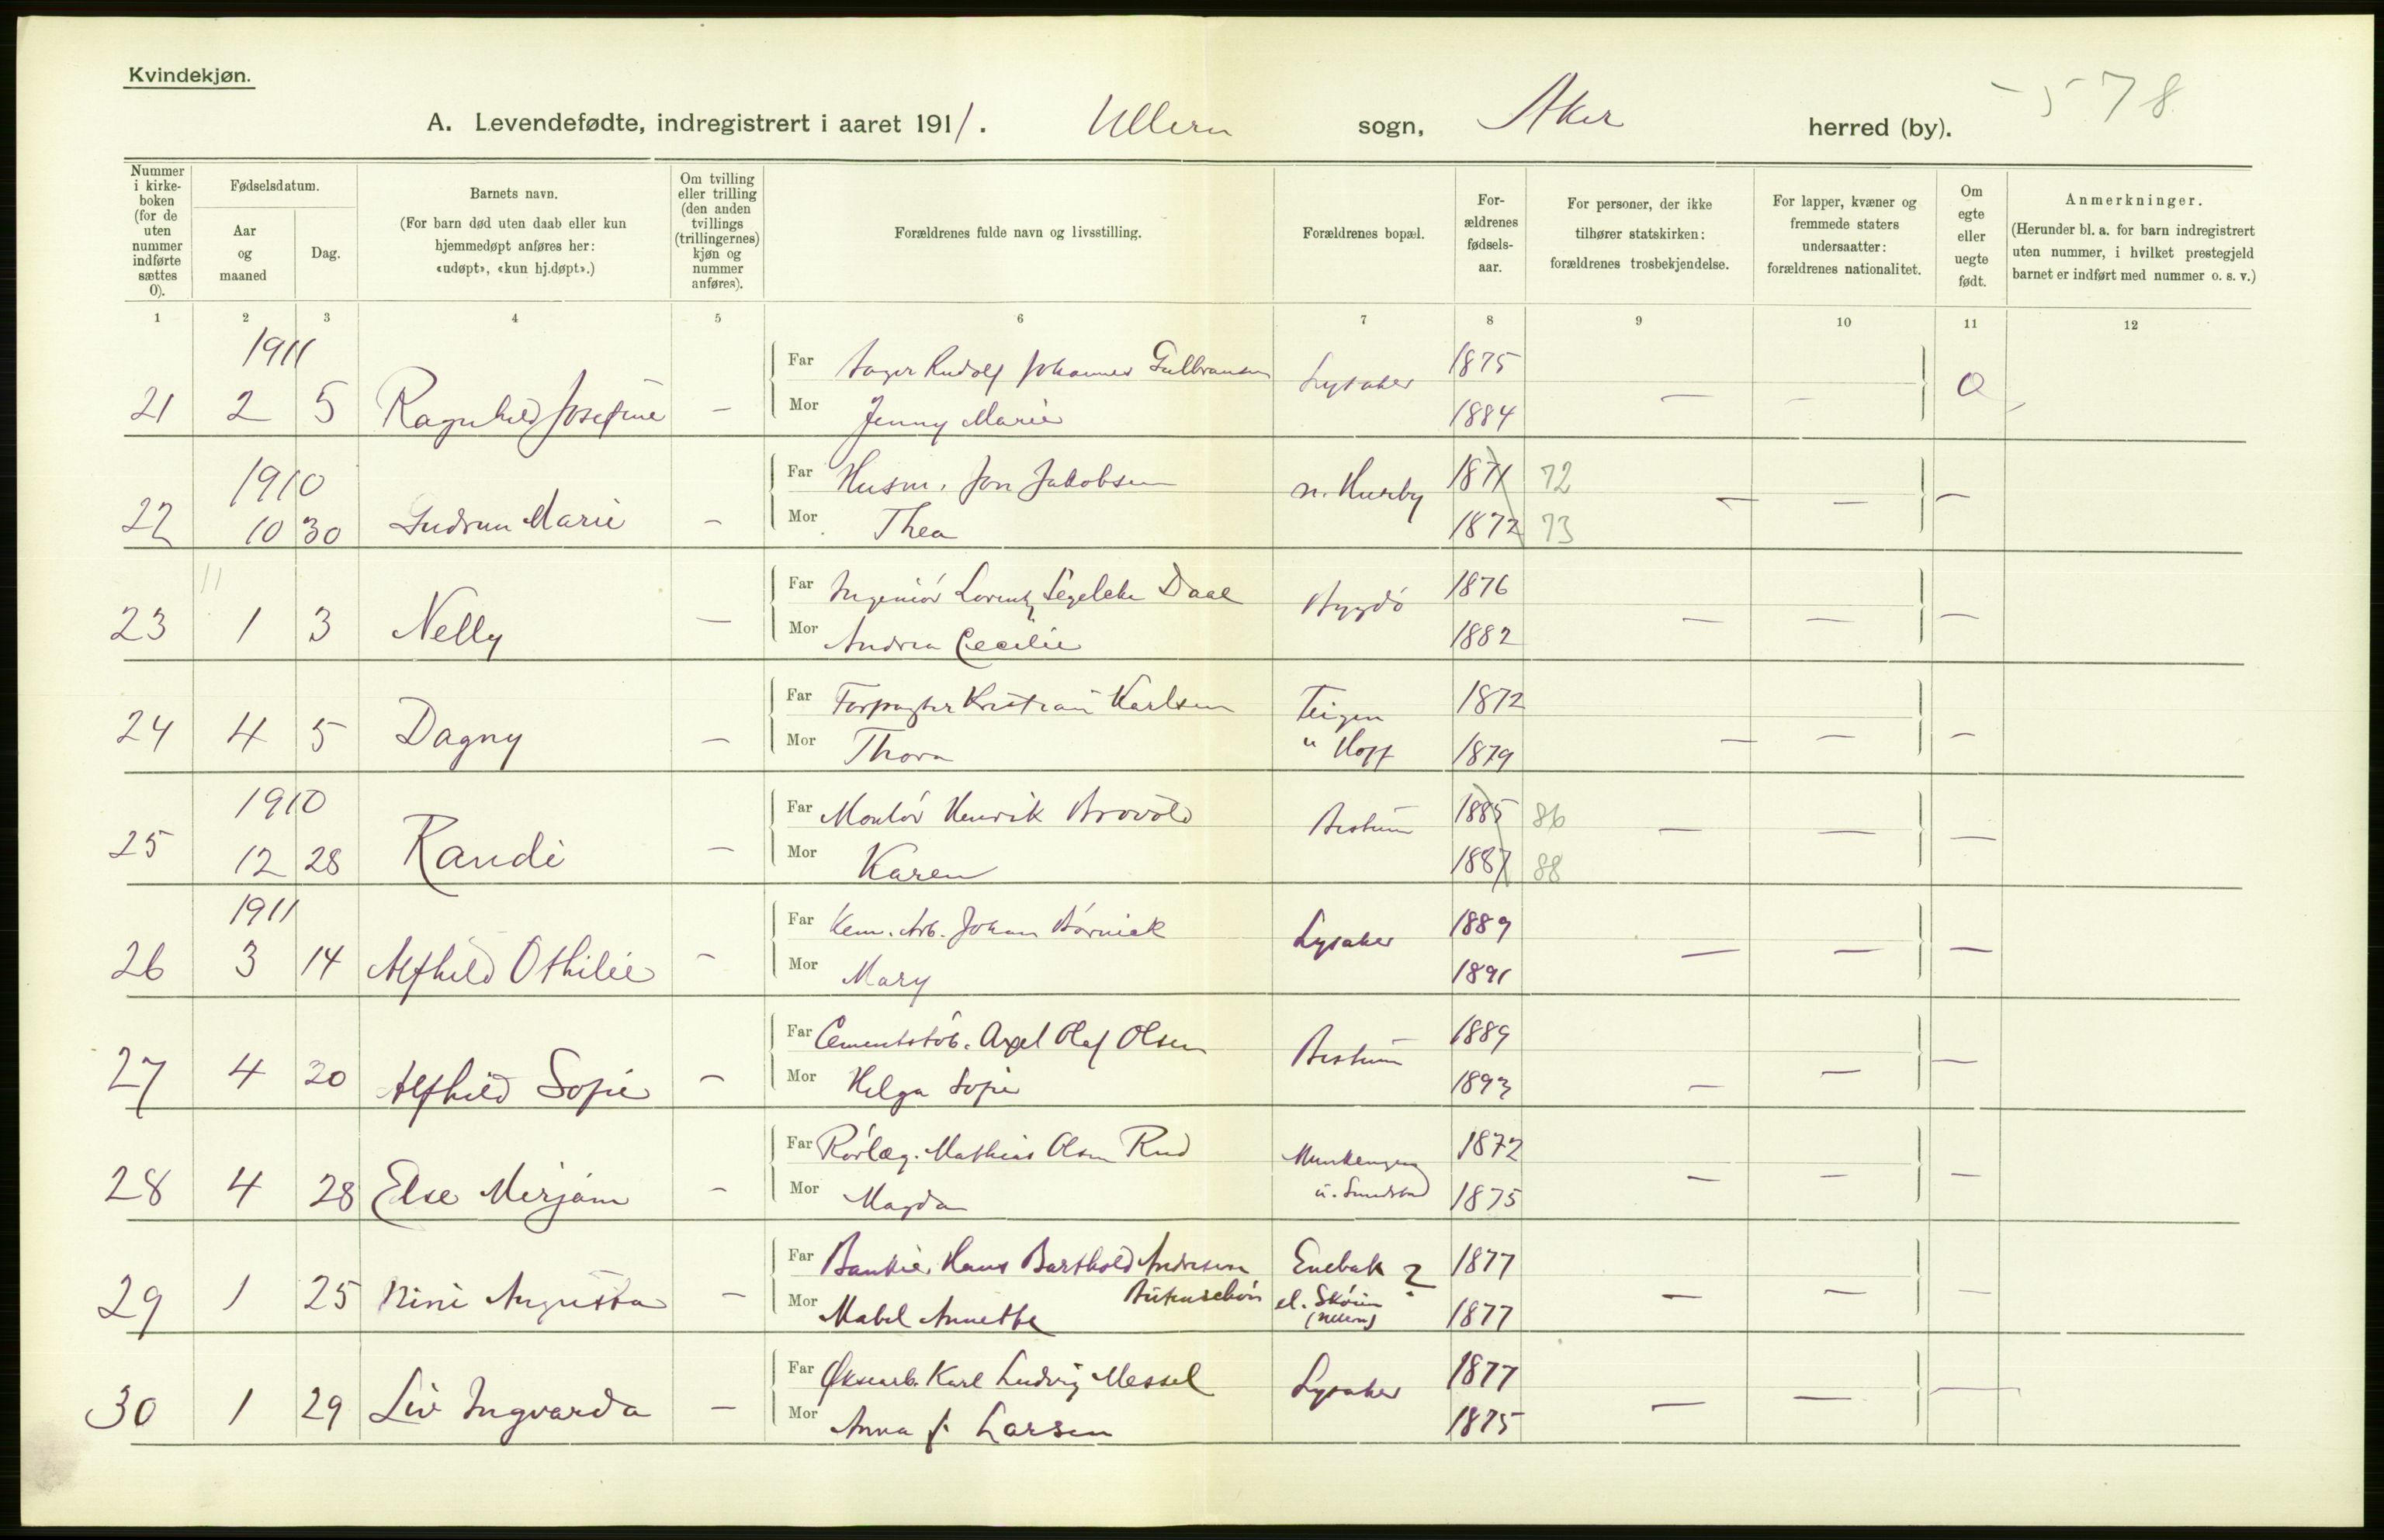 Kvindekjøn.
578
A. Levendefødte, indregistrert i aaret 1911. Ullern sogn, Aker herred (by).
Nummer i kirke-boken (for de uten nummer indførte sættes 0).
Fødselsdatum.
Aar og maaned
Dag.
Barnets navn.
(For barn død uten daab eller kun hjemmedøpt anføres her: «udøpt», «kun hj.døpt».)
Om tvilling eller trilling (den anden tvillings (trillingernes) kjøn og nummer anføres).
Forældrenes fulde navn og livsstilling.
Forældrenes bopæl.
For-ældrenes fødsels-aar.
For personer, der ikke tilhører statskirken: forældrenes trosbekjendelse.
For lapper, kvæner og fremmede staters undersaatter: forældrenes nationalitet.
Om egte eller uegte født.
Anmerkninger.
(Herunder bl. a. for barn indregistrert uten nummer, i hvilket prestegjeld barnet er indført med nummer o. s. v.)
1 2 3 4 5 6 7 8 9 10 11 12
1911
21 2 5 Ragnhild Josefine – Far Rudolf Johannes Gulbransen Lysaker 1875 – –
Mor Jenny Marie 1884
1910
22 10 30 Gudrun Marie – Far Husm. Jon Jakobsen n. Huseby 1871 72 – – –
Mor Thea 1872 73
11
23 1 3 Nelly – Far Ingeniør Lorentz Segelcke Daae Bygdö 1876 – – –
Mor Andrea Cecilie 1882
24 4 5 Dagny – Far Forpagter Kristian Karlsen Teigen 1872 – – –
Mor Thora u Hoff 1879
1910
25 12 28 Randi – Far Montör Henrik Brovold Bestum 1885 86 – – –
Mor Karen 1887 88
1911
26 3 14 Alfhild Othilie – Far Kem. Arb. Johan Börnick Lysaker 1889 – – –
Mor Mary 1891
27 4 20 Alfhild Sofie – Far Cementstöb. Axel Olaf Olsen Bestum 1889 – – –
Mor Helga Sofie 1893
28 4 28 Else Mirjam – Far Rörlæg. Mathias Olsen Rud Munkengen 1872 – – –
Mor Magda u. 1875
29 1 25 Nini Augusta – Far Bankier Hans Barthold Andresen Enebak ? 1877 – – –
Butenschön
Mor Mabel Annette el. Sköien (Ullern) 1877
30 1 29 Liv Ingvarda – Far Øksearb. Karl Ludvig Messel Lysaker 1877 – – –
Mor Anna f. Larsen 1875